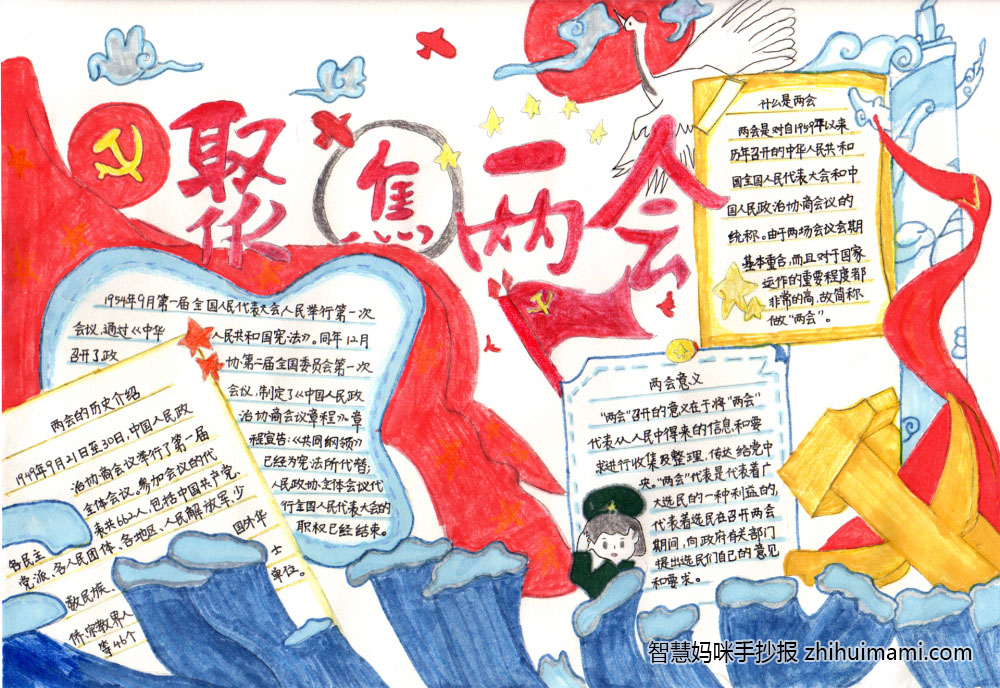 聚焦两会
什么是两会
两会是对自1959年以来
历年召开的中华人民共和
国全国人民代表大会和中
国人民政治协商会议的
统称。由于两场会议会期
基本重合,而且对于国家
运作的重要程度都
非常的高,故简称
做“两会”。
1954年9月第一届全国人民代表大会人民举行第一次
会议,通过《中华
人民共和国宪法》。同年12月
召开了政
协第二届全国委员会第一次
会议,制定了《中国人民政
治协商会议章程》。章
程宣告:《共同纲领》
已经为宪法所代替;
人民政协全体会议代
行全国人民代表大会的
职权已经结束。
两会的历史介绍
1949年9月21日至30日,中国人民政
治协商会议举行了第一届
全体会议。参加会议的代
表共662人,包括中国共产党、
各民主
党派、各人民团体、各地区、人民解放军、少
数民族、
国外华
侨、宗教界人
士
等46个
单位。
两会意义
“两会”召开的意义在于将“两会”
代表从人民中得来的信息和要
求进行收集及整理,传达给党中
央。“两会”代表是代表着广
大选民的一种利益的,
代表着选民在召开两会
期间,向政府有关部门
提出选民们自己的意见
和要求。
智慧妈咪手抄报 zhihuimami.com